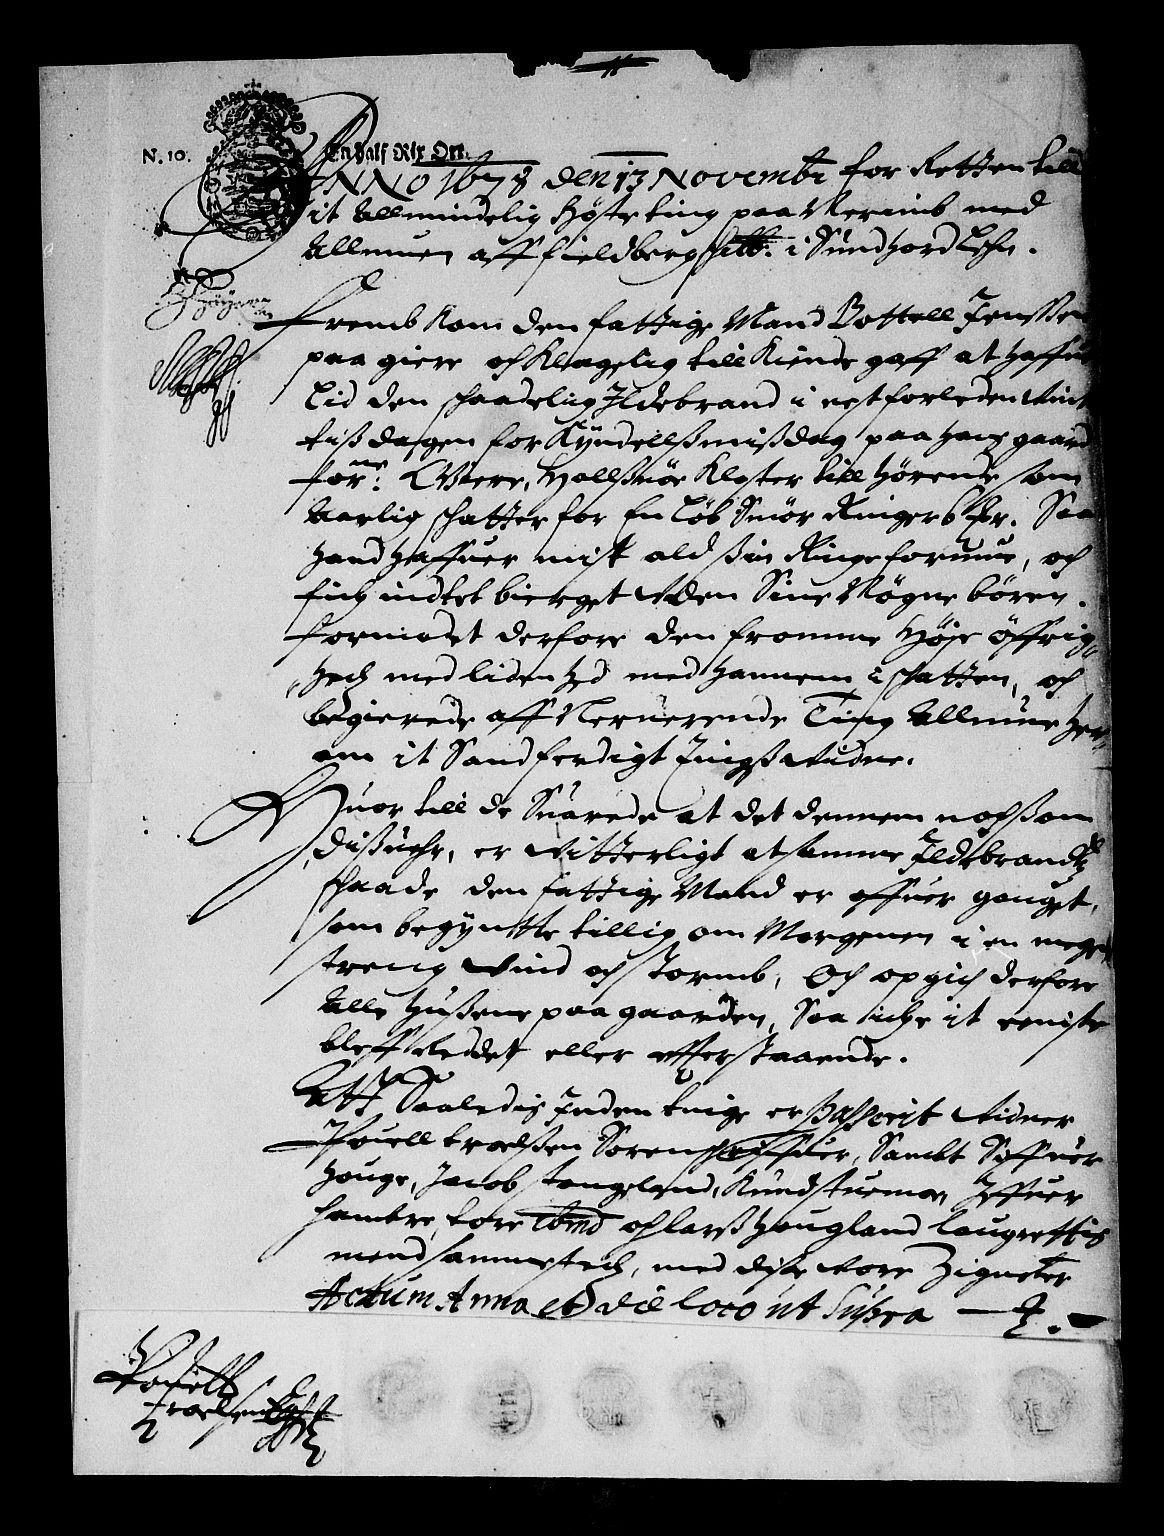 N. 10.
En half Rix Ort.
ANNO 1678 den 13 Novembr for Retten till
it Allmindelig Høste ting paa Nerimb med
Allmuen aff Fieldberg Schibb: i Sundhord Lehn.
Fremb kom den fattige Mand Bottell Jenssen
paa giere och Klagelig till Kiende gaff at haffue
Lid den schaadelig Ildebrand i nestforleden Vint
tisdagen for Kyndellsmisdag paa hans gaard
forne: Giere, Hallsnøe Kloster till hørende som
Aarlig schatter for En Løb Smør Ringer 6 Pr. Saa
hand haffuer mist ald sin Ringe formue, och
fich indtet bierget uden Sine Nøgne børen.
formodet derfore den fromme Høje Øffrig-
hed med lidenhed med hannem i schatten, och
begierede aff Neruerende Ting Allmue her
om it Sandferdigt Tings Vidne.
Huor till de Suarede at det dennem nochsom
disuehr, er vitterligt at samme Ildebrandtz
schaade den fattige Mand er offuer ganget,
som begyntte tillig om Morgenen i en meget
streng Vind och storm, Och opgich derfore
Alle Husene paa gaarden, Saa iche it eeniste
bleff Reddet eller efterstaaende.
Att Saaledis Inden tinge er passerit Vidner
Pouell traelsen Sorenschriffuer, Sambt Siffuer
houge, Jacob stangeland, Knud stuemoen Iffuer
hambre, tore och Lars hougland Laugrettis
mend sammested, med diste vore Zigneter
Actum Anno et die loco ut Supra
Pouell
Traelsen